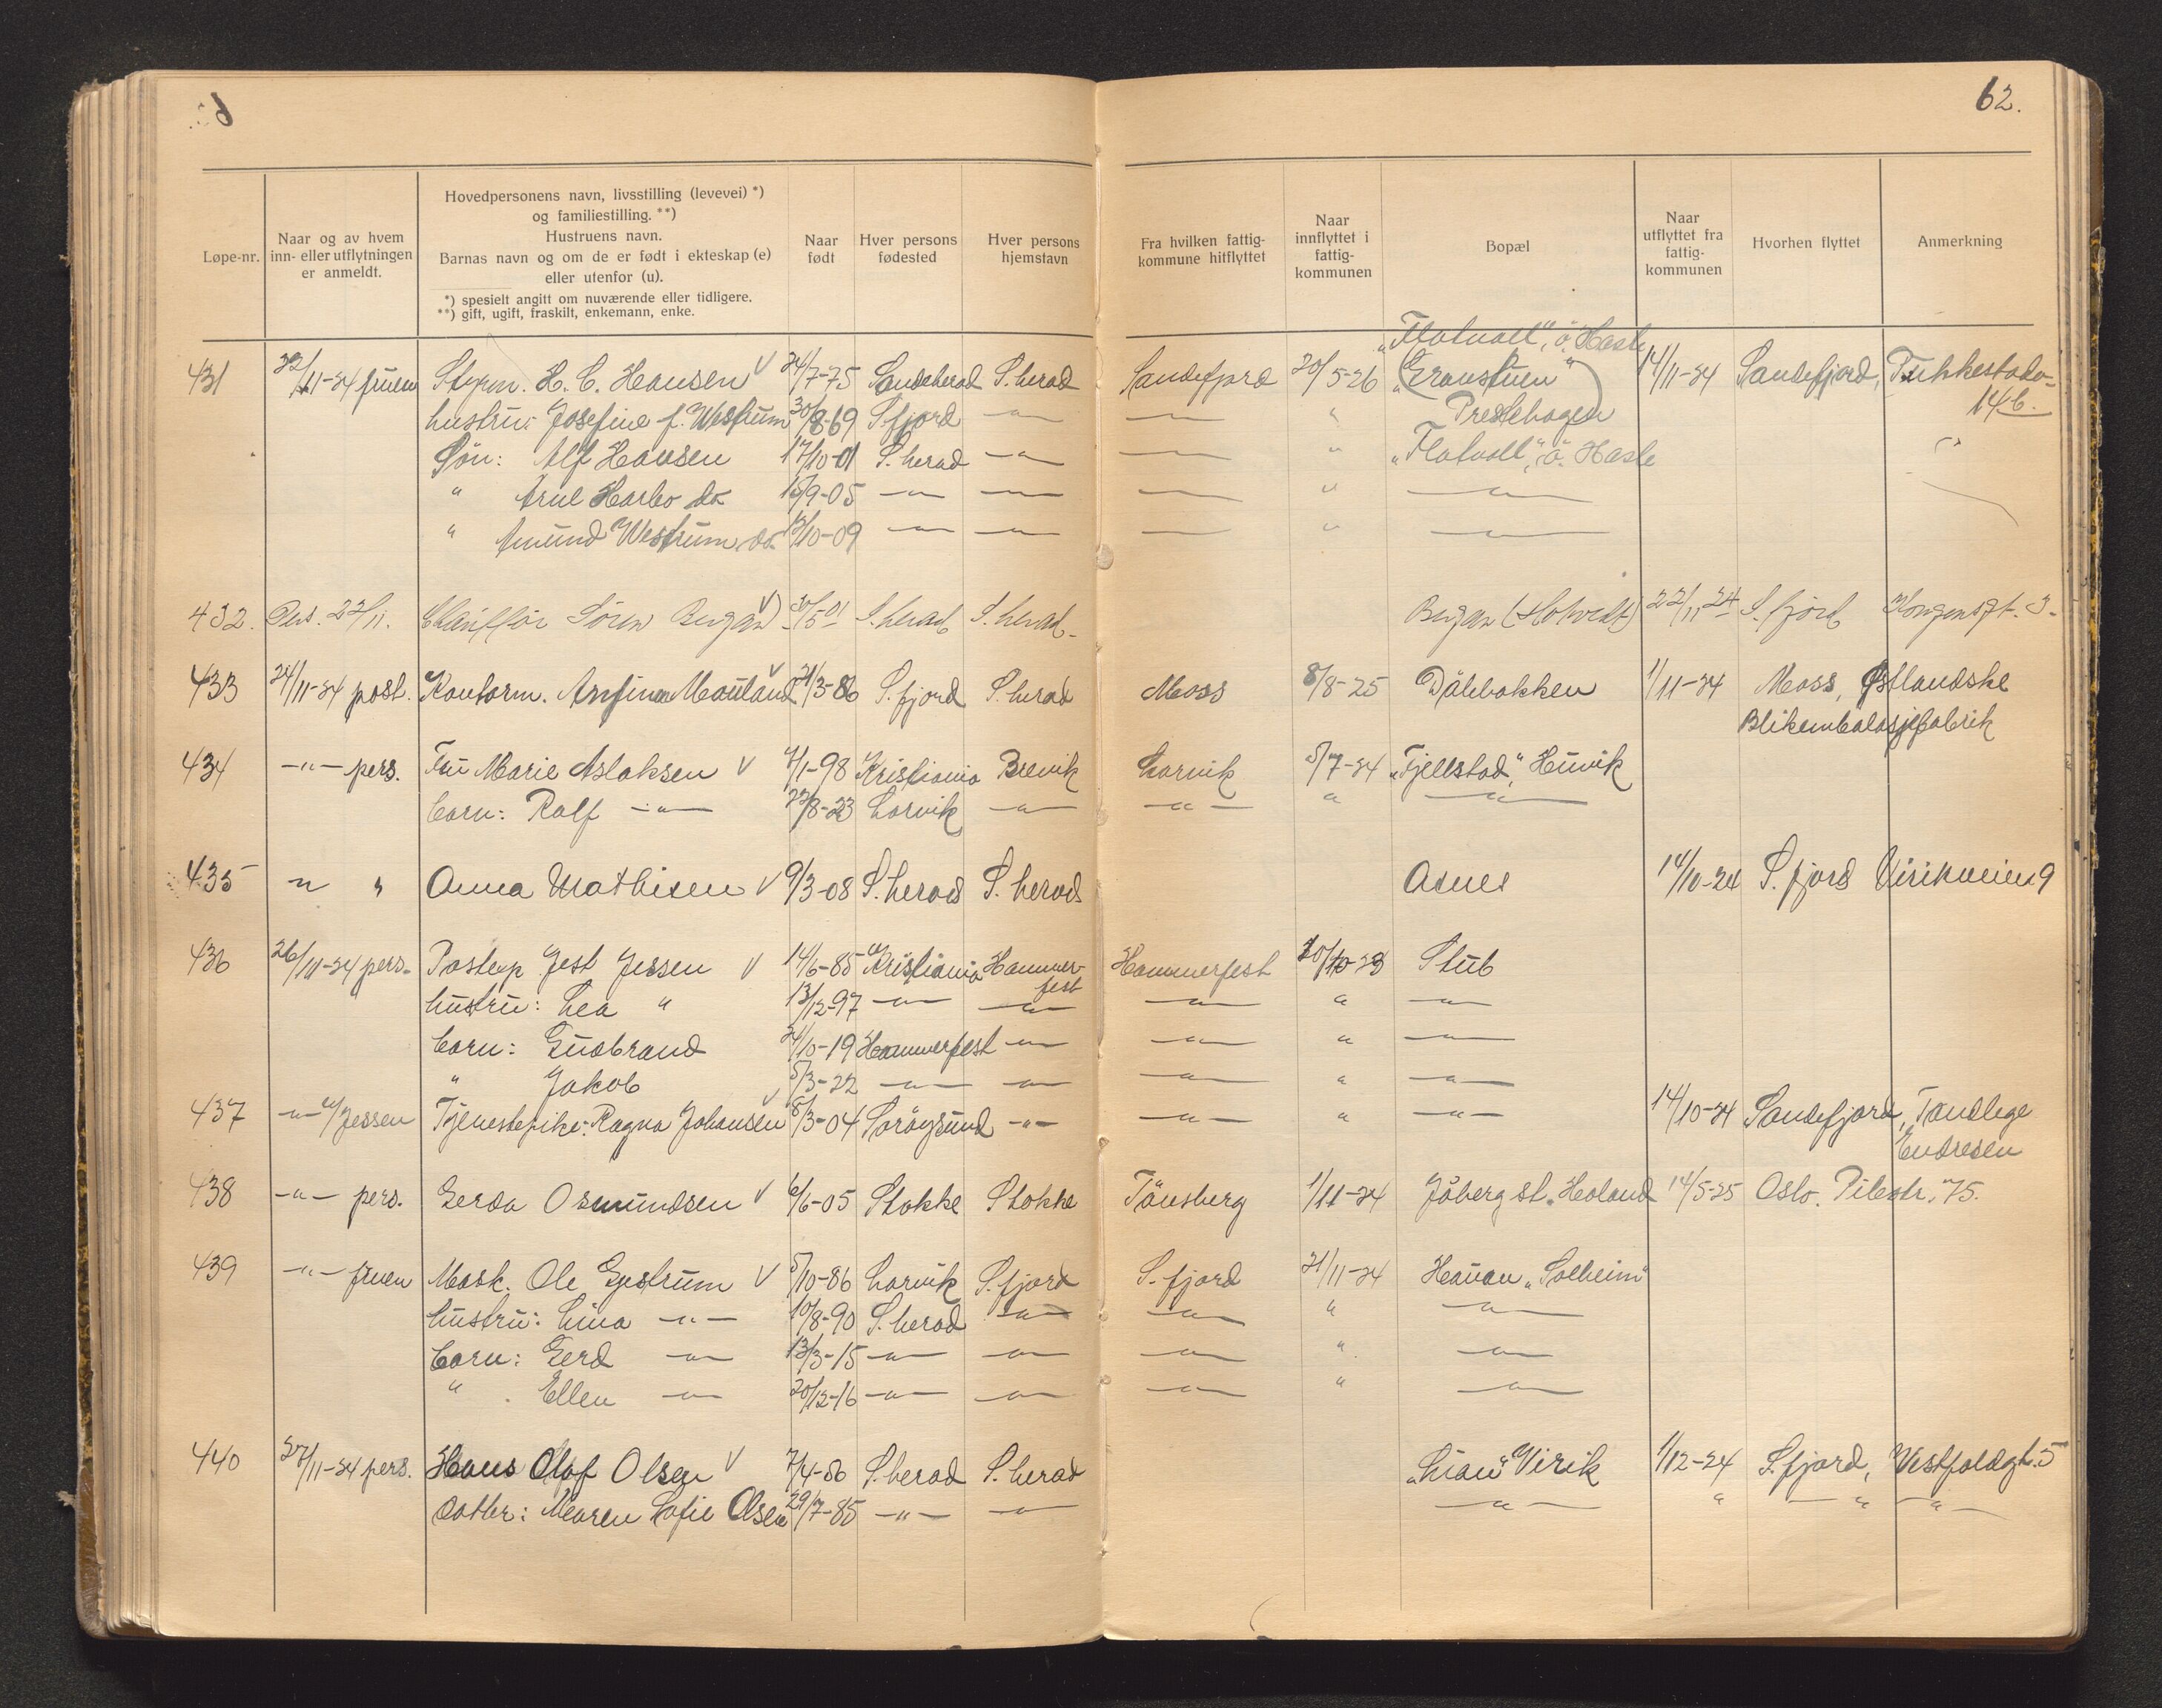 62.
Løpe-nr.
Naar og av hvem
inn- eller utflytningen
er anmeldt.
Hovedpersonens navn, livsstilling (levevei) *)
og familiestilling. **)
Hustruens navn.
Barnas navn og om de er født i ekteskap (e)
eller utenfor (u).
*) spesielt angitt om nuværende eller tidligere.
**) gift, ugift, fraskilt, enkemann, enke.
Naar
født
Hver persons
fødested
Hver persons
hjemstavn
Fra hvilken fattig-
kommune hitflyttet
Naar
innflyttet i
fattig-
kommunen
Bopæl
Naar
utflyttet fra
fattig-
kommunen
Hvorhen flyttet
Anmerkning
"Flatvoll", ö. Hasle
431 22/11-24 fruen Styrm. H. C. Hansen V 24/7-75 Sandeherad S. herad Sandefjord 20/5-26 ("Granstuen" 14/11-24 Sandefjord,
14 b.
hustru: Josefine f. Westrum 30/8-69 S. fjord -"- -"- " Prestehagen)
Sön: Alf Hansen 17/10-01 S. herad -"- -"- " "Flatvoll", ö. Hasle
" Arne Harbo do. 15/9-05 -"- -"- -"- " -"-
" Amund Westrum do. 13/10-09 -"- -"- -"- " -"-
432. Pers. 22/11. Søren Bugan V 30/5-01 S. herad S. herad Bugan 22/11 24 S. fjord Kongensgt. 3.
433 24/11-24 post. Kontorm. Arnfinn Mauland V 21/3-86 S. fjord S. herad Moss 8/8-25 Dålebakken 1/11-24 Moss, Østlandske
Blikemballasjefabrik
434 -"- pers. Fru Marie Aslaksen V 4/1-98 Kristiania Brevik Larvik 5/7-24 "Fjellstad", Huvik
barn: Ralf -"- 23/8-23 Larvik -"- -"- " -"-
435 " " Anna Mathisen V 9/3-08 S. herad S. herad Asnes 14/10-24 S. fjord Virikveien 9
436 26/11-24 pers. Postexp. Jest Jessen V 14/6-85 Kristiania Hammer-
fest Hammerfest 20/10-23 Stub
hustru: Lea " 13/12-97 -"- -"- -"- " -"-
barn: Gudbrand 24/10-19 Hammerfest -"- -"- " -"-
" Jakob 5/3-22 -"- -"- -"- " -"-
437 -"- v/Jessen Tjenestepike: Ragna Johansen V 8/3-04 Sørøysund -"- -"- " -"- 14/10-24 Sandefjord, Tandlege
Endresen
438 -"- pers. Gerda Osmundsen V 6/6-05 Stokke Stokke Tönsberg 1/11-24 Jåberg st. Haland 14/5-25 Oslo. Pilestr. 75.
439 -"- fruen Mask. Ole Gystrum V 5/10-86 Larvik S. fjord S. fjord 21/11-24 Hauan "Solheim"
hustru: Lina -"- 10/8-90 S. herad -"- -"- " -"-
barn: Gerd -"- 13/3-15 -"- -"- -"- " -"-
" Ellen -"- 20/12-16 -"- -"- -"- " -"-
440 27/11-24 pers. Hans Olaf Olsen V 7/4-56 S. herad S. herad "Lian" Virik 1/12-24 S. fjord, Vestfoldgt. 5
datter: Maren Sofie Olsen 29/7-85 -"- -"- -"- " -"- -"-